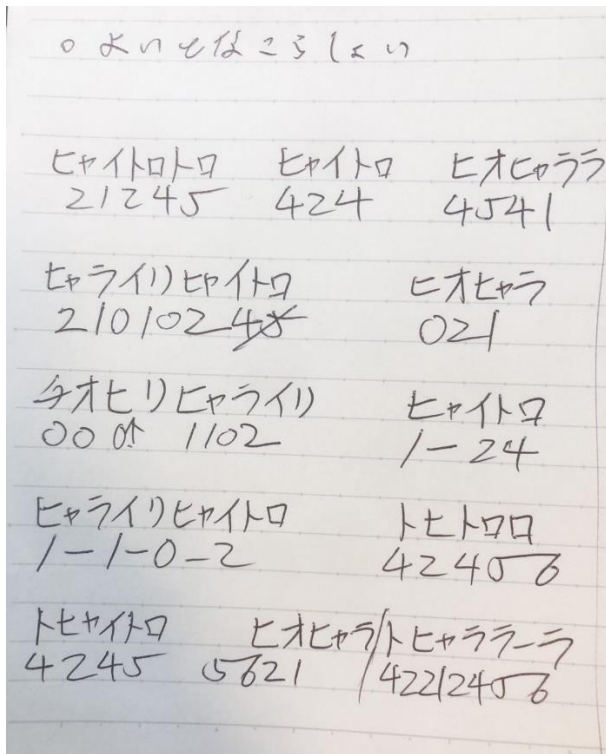 ○よいとなこらしょい
ヒャイトロトロ ヒャイトロ ヒオヒャララ
21245 424 4541
ヒャライリヒャイトロ ヒオヒャラ
2101024 021
チオヒリヒャライリ ヒャイトロ
00 1102 1-24
ヒャライリヒャイトロ トヒトロロ
1-1-0-2 42456
トヒャイトロ ヒオヒャラ/トヒャララーラ
4245 5621 /42212456